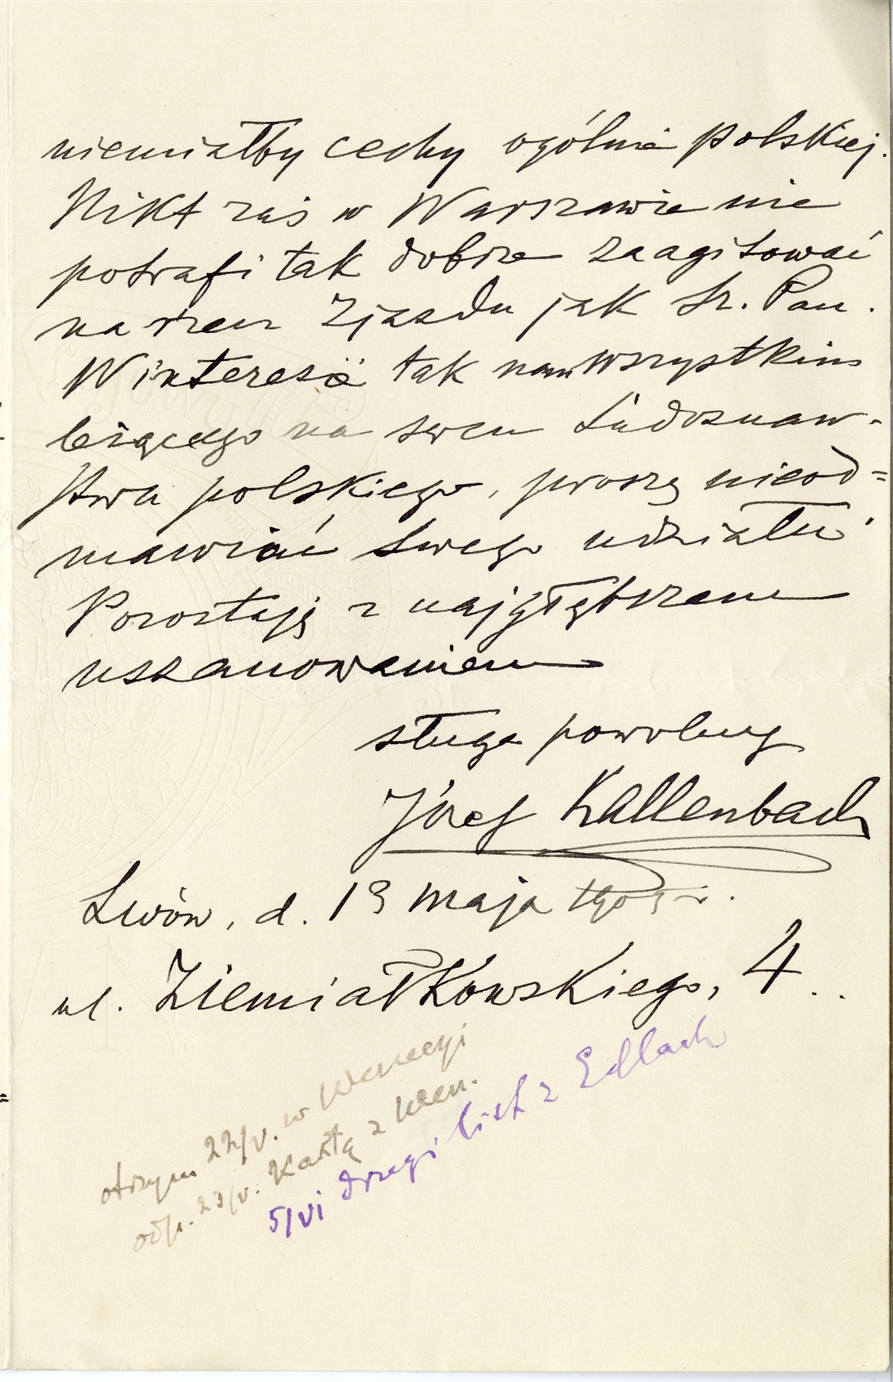 niemiałby cechy ogólnie polskiej.
Nikt zaś w Warszawie nie
potrafi tak dobrze zaagitować
na rzecz Zjazdu jak Sz. Pan.
W interesie tak nam wszystkim
leżącego na sercu Ludoznaw-
stwa polskiego, proszę nieod=
mawiać swego udziału
Pozostaję z najgłębszem
uszanowaniem
sługa powolny
Józef Kallenbach
Lwów, d. 19 maja 1905 r.
ul. Ziemiałkowskiego, 4..
otrzym 22/V. w Wenecyi
odp. 23/V. Kartą z Wen.
5/VI drugi list z Edlach